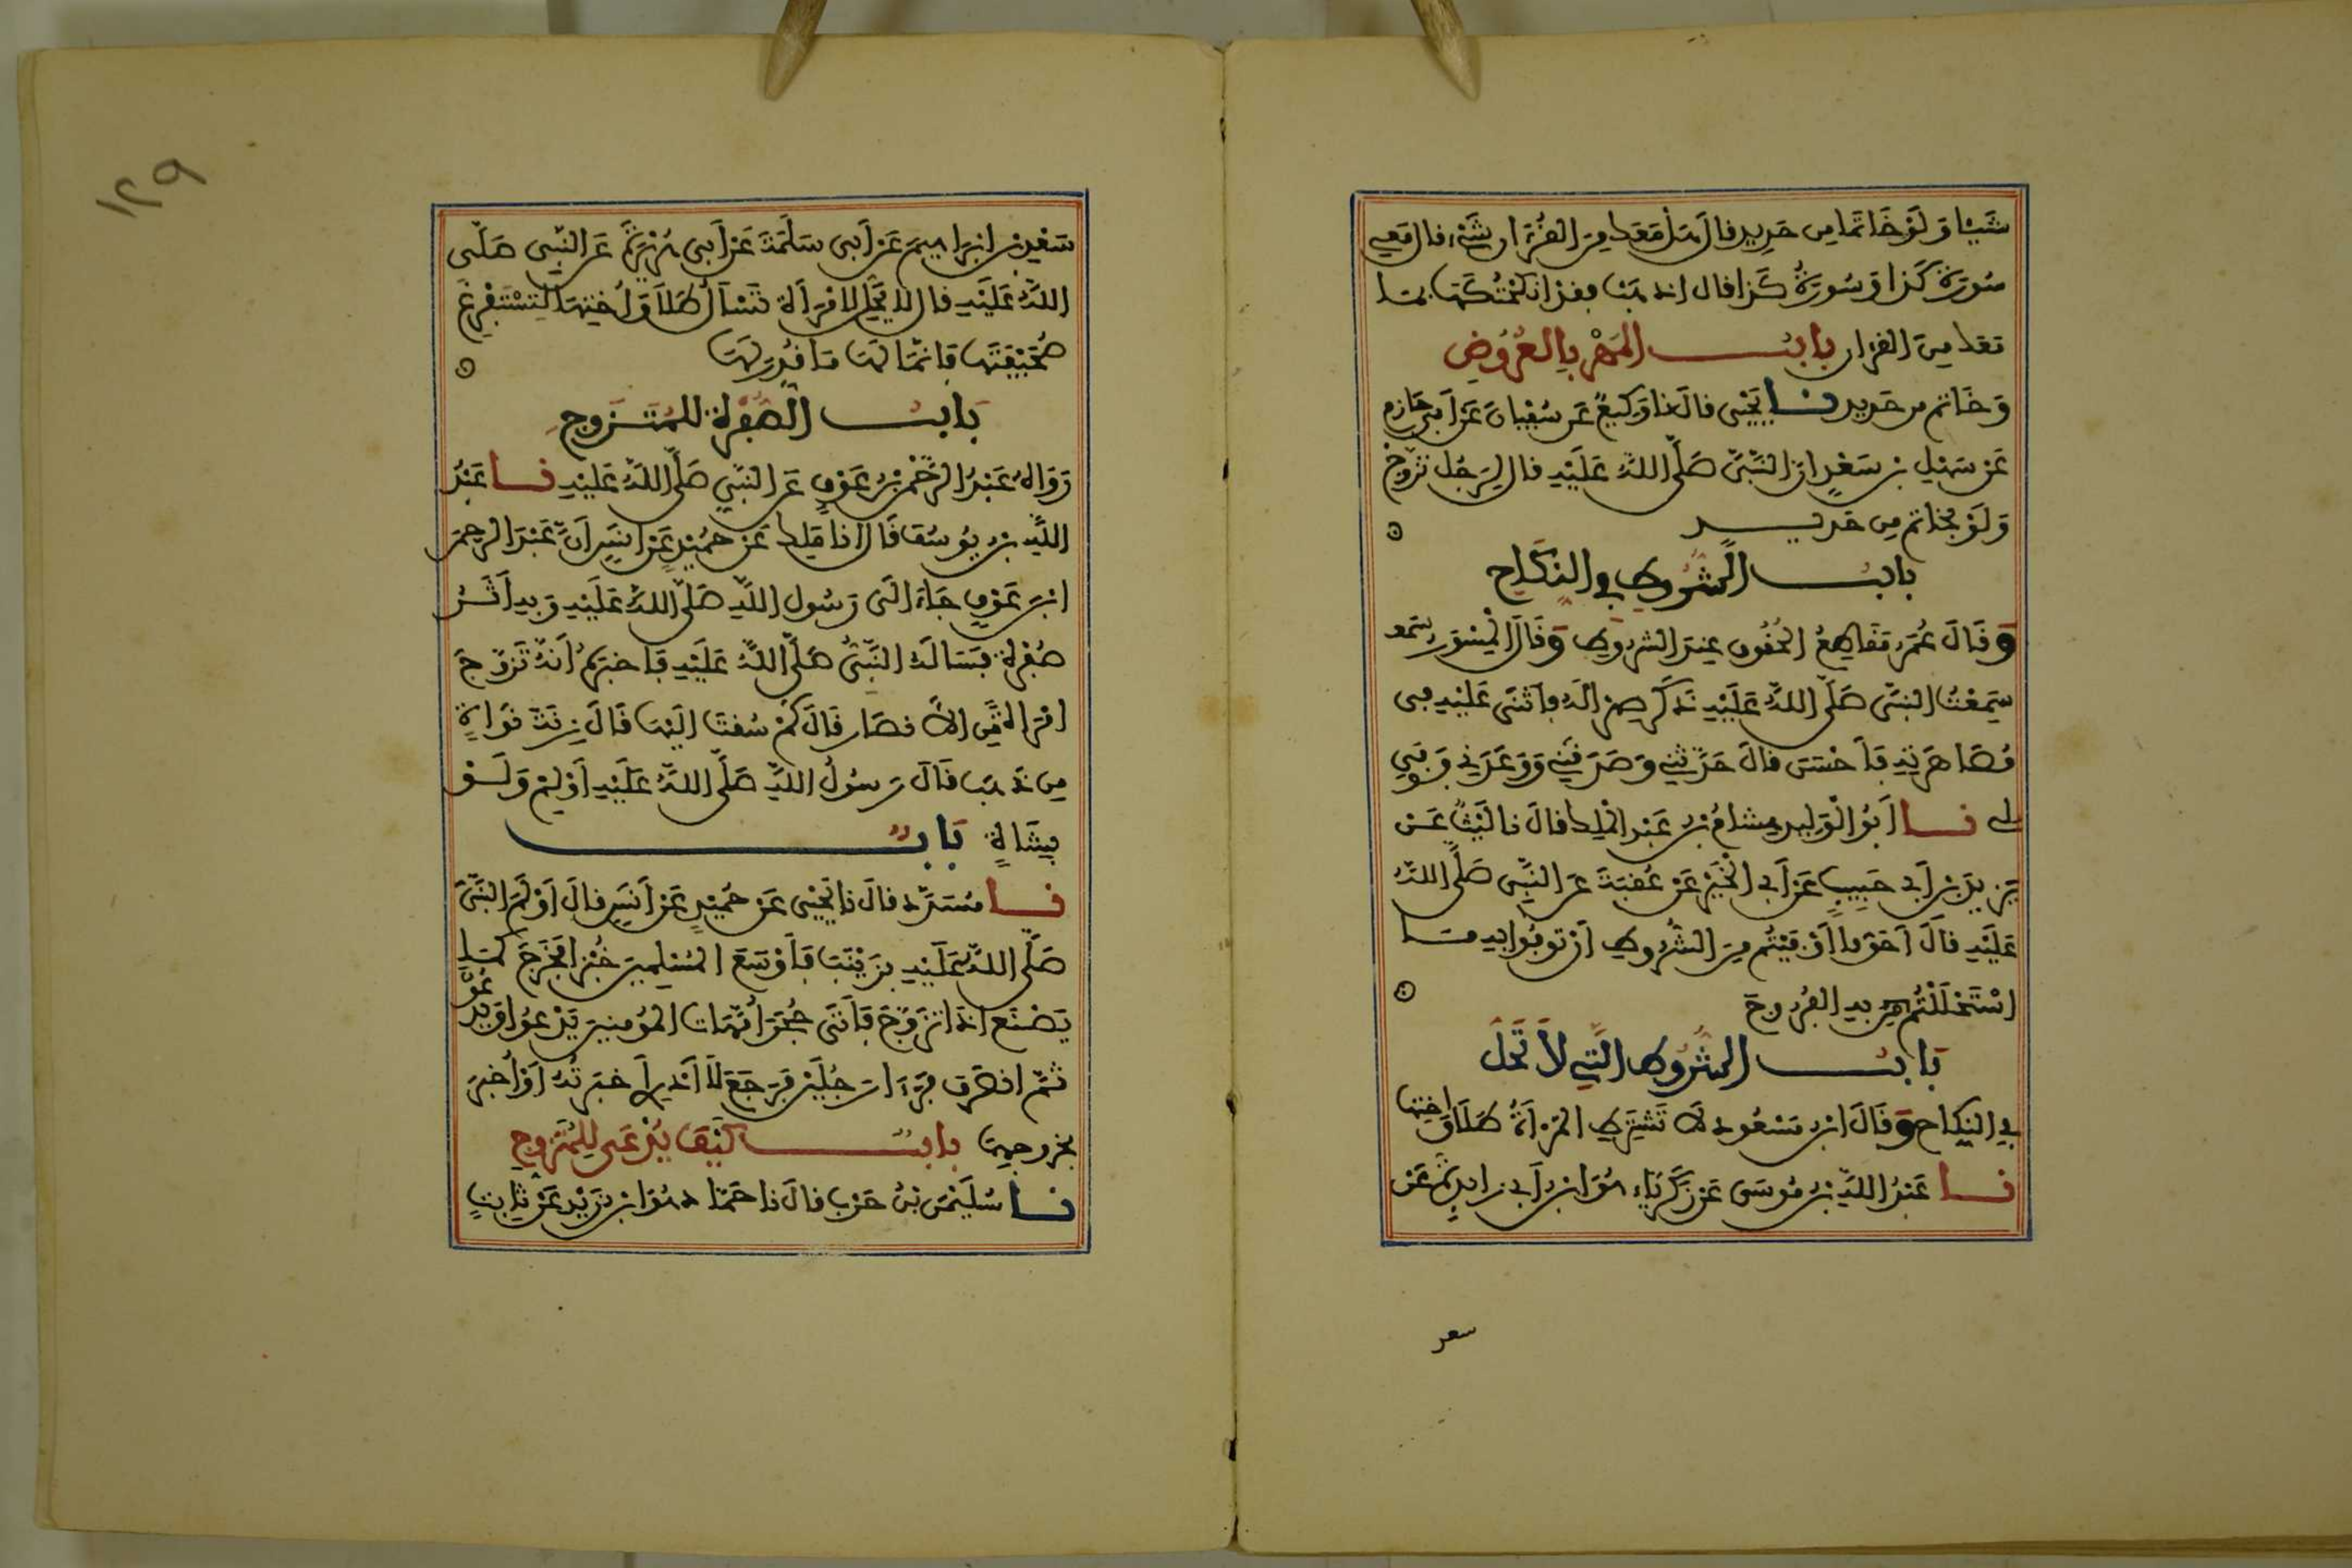 شَيْئا وَلَوْ خَاتَمًا مِن حَدِيدٍ قالَ هَلْ مَعَكَ مِنَ القُرْءَانِ شَيْءٌ قالَ مَعِي
سُورَةُ كَذا وَسُورَةُ كَذا قال اذهَبْ فقد أنكَحْتُكَهَا بمَا
مَعَكَ مِنَ القرءان بابُ المَهْرِ بِالعُرُوضِ
وَخَاتم من حَديد نا يَحْيَى قالَ نا وَكِيعٌ عَن سُفْيَانَ عَنْ أَبِي حَازم
عَنْ سَهْلِ بْنِ سَعْدٍ انّ النَّبِيَّ صَلَّى اللهُ عَلَيْهِ قال لِرَجُل تزَوَّجْ
وَلَوْ بِخَاتم مِن حَدِيد
بابُ الشُّرُوط في النِّكَاح
وَقَالَ عُمَرُ مَقَاطِعُ الحُقُوقِ عِندَ الشُّرُوطِ وَقَالَ المِسْوَرُ
سَمِعْتُ النَّبِيَّ صَلَّى اللهُ عَلَيْهِ ذَكَرَ صِهْرًا لَهُ فأَثْنَى عَلَيْهِ في
مُصَاهَرَتِهِ فَأَحْسَنَ قالَ حَدَّثَنِي وَصَدَقَنِي وَوَعَدَنِي فَوَفَى
لي نا أَبُو الْوَلِيدِ هِشَامُ بْنُ عَبْدِ المَلِكِ قالَ نا لَيْثٌ عَنْ
يَزِيدَ بْنِ أَبِي حَبِيبٍ عَنْ أَبِي الْخَيْرِ عَنْ عُقْبَةَ عَنِ النَّبِيِّ صَلَّى اللهُ
عَلَيْهِ قالَ أَحَقُّ ما أَوْفَيْتُم مِنَ الشُّرُوطِ أَنْ تُوفُوا بِهِ مَا
اسْتَحْلَلْتُم بِهِ الفُرُوجَ
بَابُ الشُّرُوطِ الَّتِي لاَ تَحِلُّ
في النِّكَاحِ وَقَالَ ابْنُ مَسْعُودٍ لاَ تَشْتَرِطِ المَرْأَةُ طَلاَقَ أختها
نا عُبَيْدُ اللهِ بْنُ مُوسَى عَنْ زَكَرِيَّاءَ هُوَ ابْنُ أَبِي زَائِدَةَ عَنْ
سعد
١٢٩
سَعْدِ بْنِ إِبْرَاهِيمَ عَنْ أَبِي سَلَمَةَ عَنْ أَبِي هُرَيْرَةَ عَنِ النَّبِيِّ صَلَّى
اللهُ عَلَيْهِ قال لا يَحِلُّ لامْرَأَةٍ تَسْأَلُ طَلاَقَ أُخْتِهَا لِتَسْتَفْرِغَ
صَحْفَتَهَا فَإِنَّمَا لَهَا مَا قُدِّرَ لَهَا
بَابُ الصُّفْرَةِ لِلْمُتَزَوِّجِ
رَوَاهُ عَبْدُ الرَّحْمنِ بْنُ عَوْفٍ عَنِ النَّبِيِّ صَلَّى اللهُ عَلَيْهِ نا عَبْدُ
اللهِ بْنُ يُوسُفَ قَالَ انا مَلِك عَنْ حُمَيْدٍ عَنْ أَنَسٍ أَنَّ عَبْدَ الرحمن
ابْنَ عَوْفٍ جَاءَ إِلَى رَسُولِ اللهِ صَلَّى اللهُ عَلَيْهِ وَبِهِ أَثَرُ
صُفْرَةٍ فَسَأَلَهُ النَّبِيُّ صَلَّى اللهُ عَلَيْهِ فَأَخْبَرَهُ أَنَّهُ تَزَوَّجَ
امْرَأَةً مِنَ الانْصَارِ قَالَ كَمْ سُقْتَ إِلَيْهَا قَالَ زِنَةَ نَوَاةٍ
مِن ذَهَبٍ قَالَ رَسُولُ اللهِ صَلَّى اللهُ عَلَيْهِ أَوْلِمْ وَلَوْ
بِشَاةٍ بَابٌ
نا مُسَدَّدٌ قالَ نا يَحْيَى عَنْ حُمَيْدٍ عَنْ أَنَسٍ قالَ أَوْلَمَ النَّبِيُّ
صَلَّى اللهُ عَلَيْهِ بِزَيْنَبَ فَأَوْسَعَ المُسْلِمِينَ خُبْزًا فَخَرَجَ كَمَا
يَصْنَعُ إِذَا تَزَوَّجَ فَأَتَى حُجَرَ أُمَّهَاتِ المُؤْمِنِينَ يَدْعُو وَيَدْعُونَ
ثُمَّ انْصَرَفَ فَرَأَى رَجُلَيْنِ فَرَجَعَ لاَ أَدْرِي أَخْبَرْتُهُ أَوْ أُخْبِرَ
بِخُرُوجِهِمَا بابٌ كَيْفَ يُدْعَى لِلْمُتَزَوِّجِ
نا سُلَيْمنُ بْنُ حَرْبٍ قالَ نا حَمَّاد هُوَ ابْنُ زَيْدٍ عَنْ ثَابِتٍ